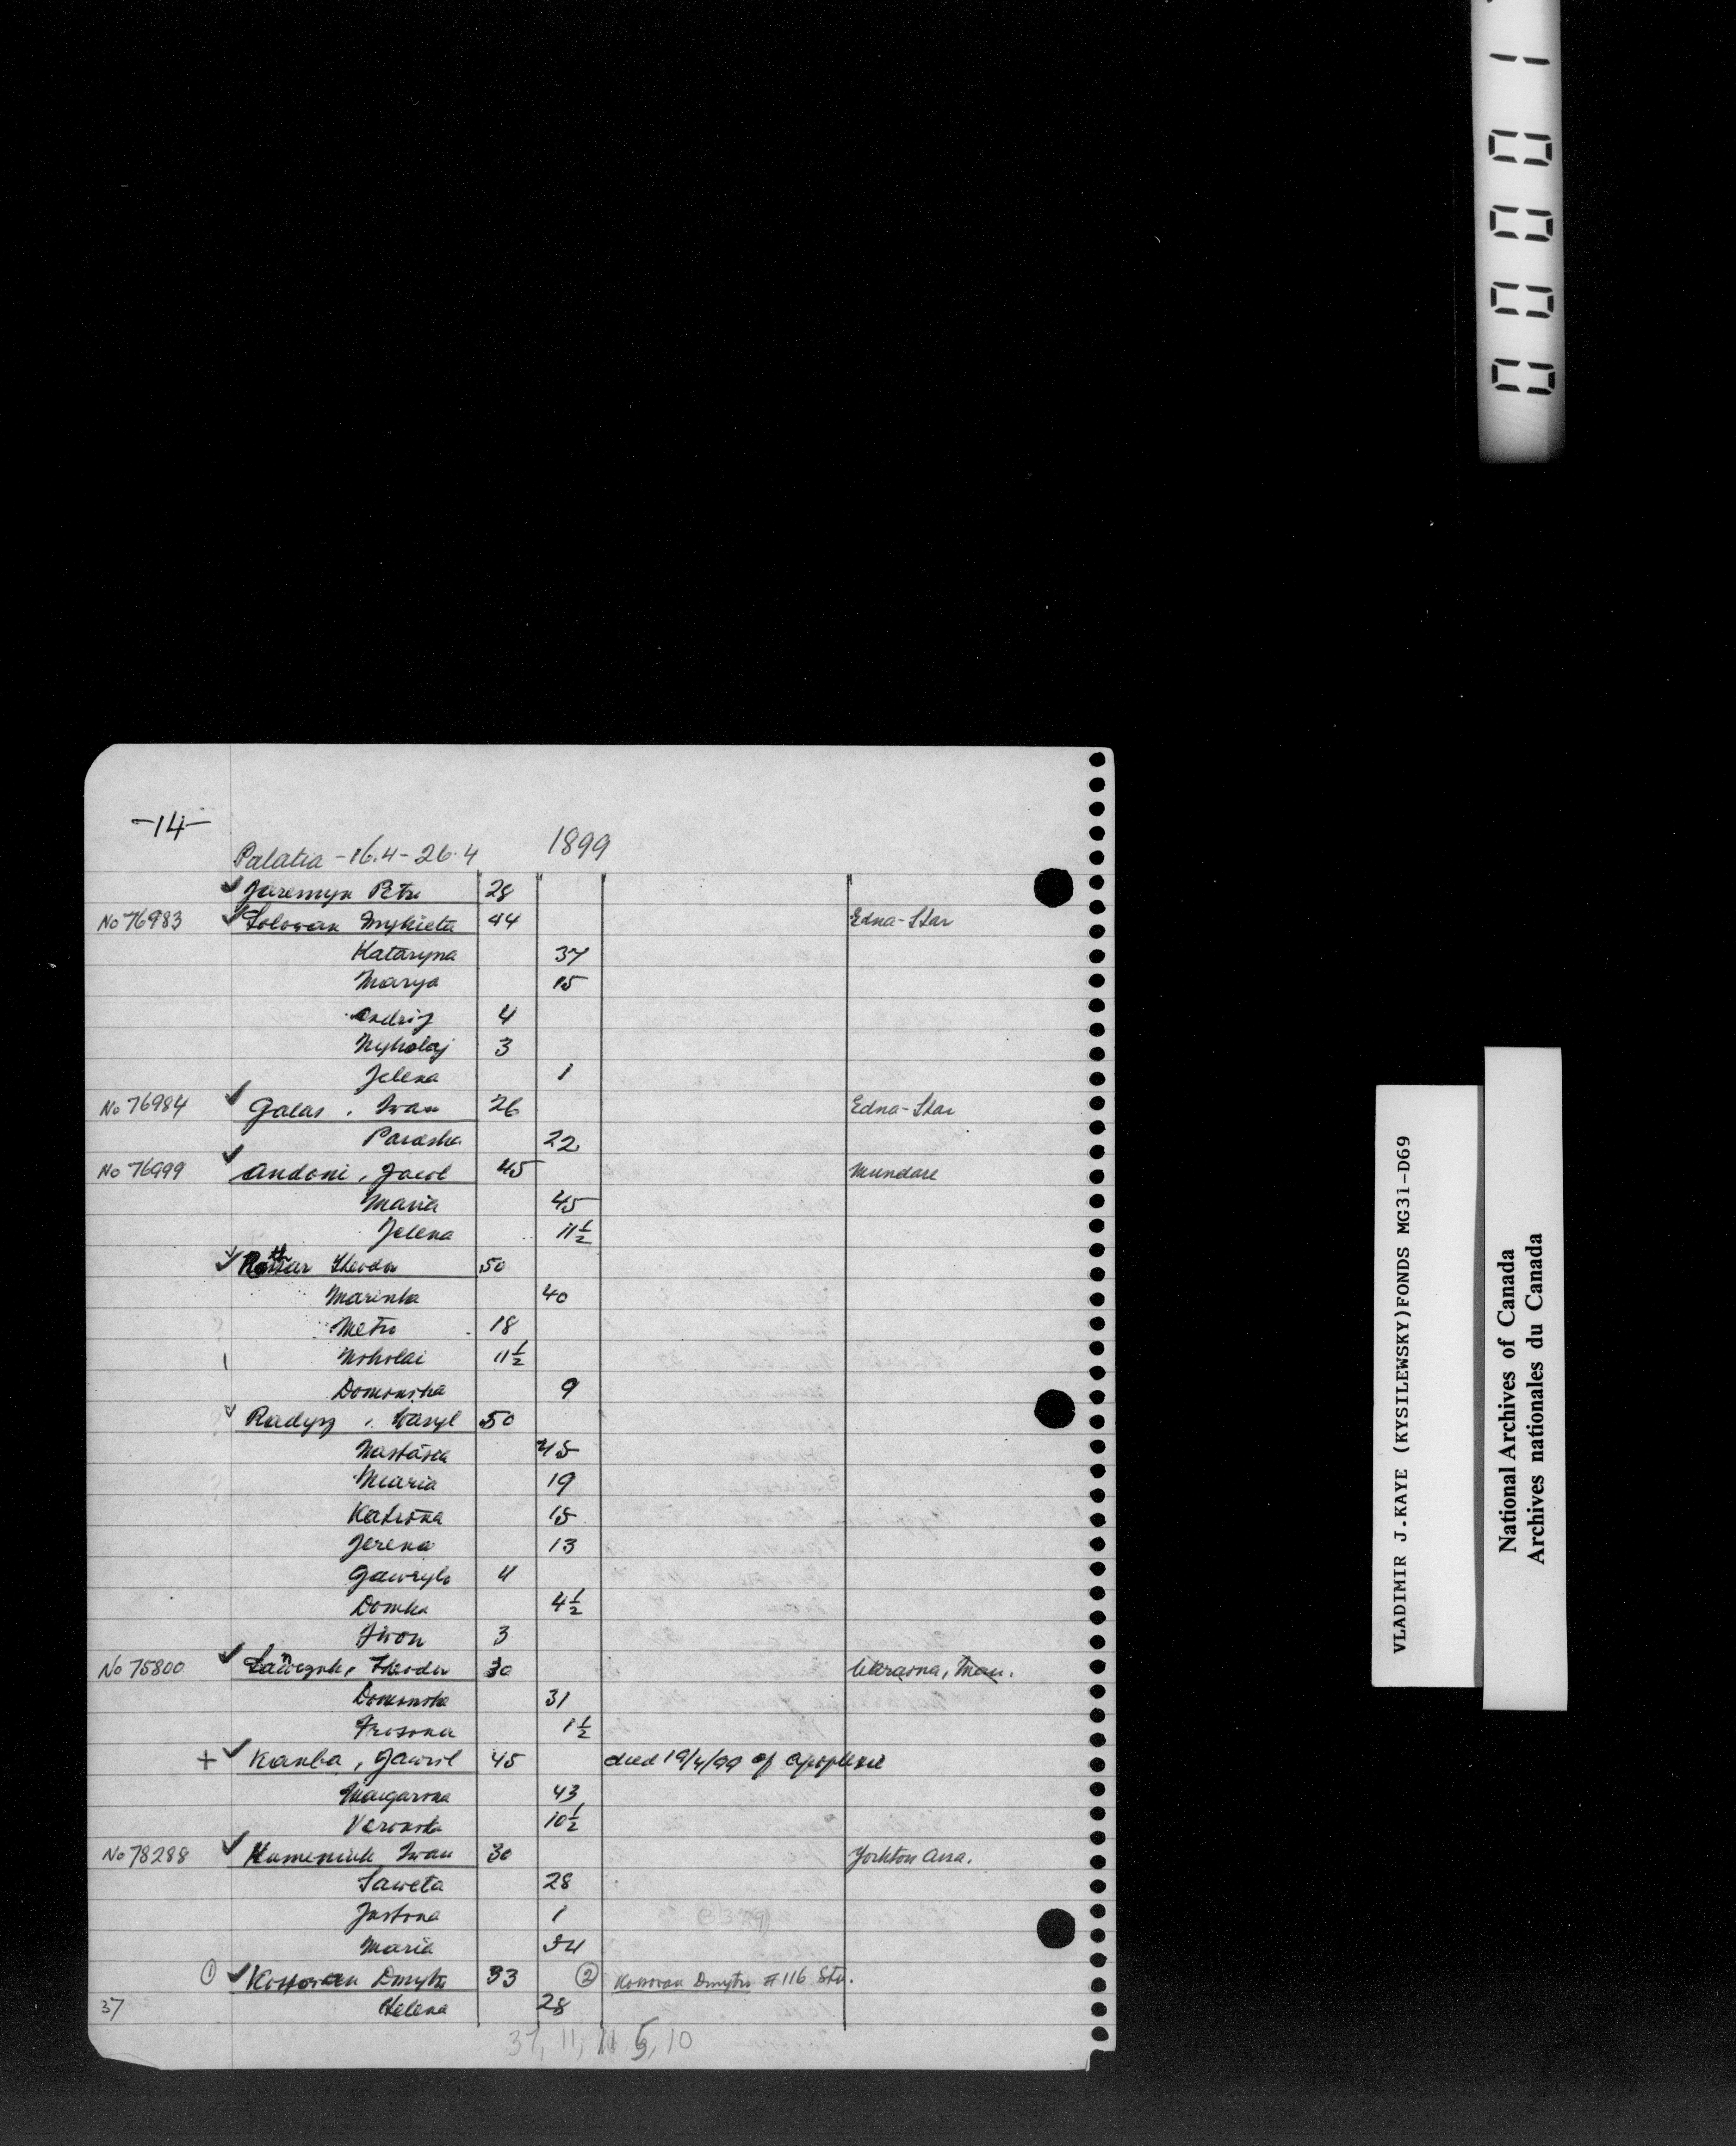 -14-
1899
Palatia - 16.4 - 26.4
Jaremyn Petro 28
No 76983 Solowan Mykieta 44 Edna-Star
Kataryna 37
Marya 15
Andrij 4
Mykolaj 3
Jelena 1
No 76984 Galas, Iwan 26 Edna-Star
Paraska 22
No 76999 Andoni, Jacob 45 Mundare
Maria 45
Jelena 11½
Theodor 50
Marinka 40
Metro 18
Nokolai 11½
Domonika 9
Radysz, Wasyl 50
Nastasia 45
Maria 19
Katrina 15
Jerena 13
Gawrylo 11
Domka 4½
Iwon 3
No 75800 Theodor 30 Ukraina, Man.
Domonika 31
Frosona 1½
+ Kanba, Gawril 45 died 19/4/99 of apoplexie
Margarona 43
Veronika 10½
No 78288 Humeniuk Iwan 30 Yorkton Assa.
Saweta 28
Jastona 1
Maria
① Kossowan Dmytro 33 ② Kossowan Dmytro #116 Stu.
37 Helena 28
37, 11, 11 5, 10
00001
VLADIMIR J.KAYE (KYSILEWSKY)FONDS MG31-D69
National Archives of Canada
Archives nationales du Canada